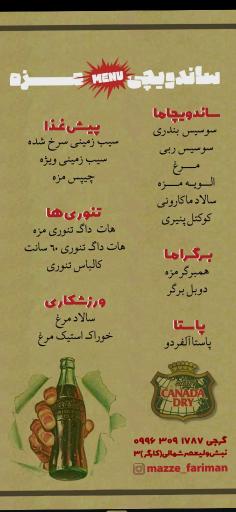 ساندویچی مزه
MENU
ساندویچاما
سوسیس بندری
سوسیس ربی
مرغ
الویه مزه
سالاد ماکارونی
کوکتل پنیری
برگراما
همبرگر مزه
دوبل برگر
پاستا
پاستا آلفردو
پیش‌غذا
سیب زمینی سرخ شده
سیب زمینی ویژه
چیپس مزه
تنوری‌ها
هات داگ تنوری مزه
هات داگ تنوری ۶۰ سانت
کالباس تنوری
ورزشکاری
سالاد مرغ
خوراک استیک مرغ
CANADA
DRY
گرجی ۱۷۸۷ ۳۰۹ ۰۹۹۶
نبش ولیعصر شمالی (کارگر ۳)
mazze_fariman